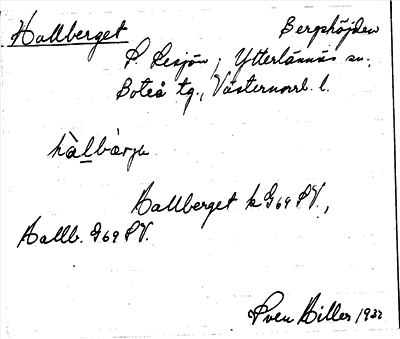 Hallberget Bergshöjden
S. Resjön; Ytterlännäs sn.,
Boteå tg., Västernorrl. l.
hàlbàrjə
Hallberget k G69 SV.,
Hallb. G69 SV.
Sven Hiller 1932